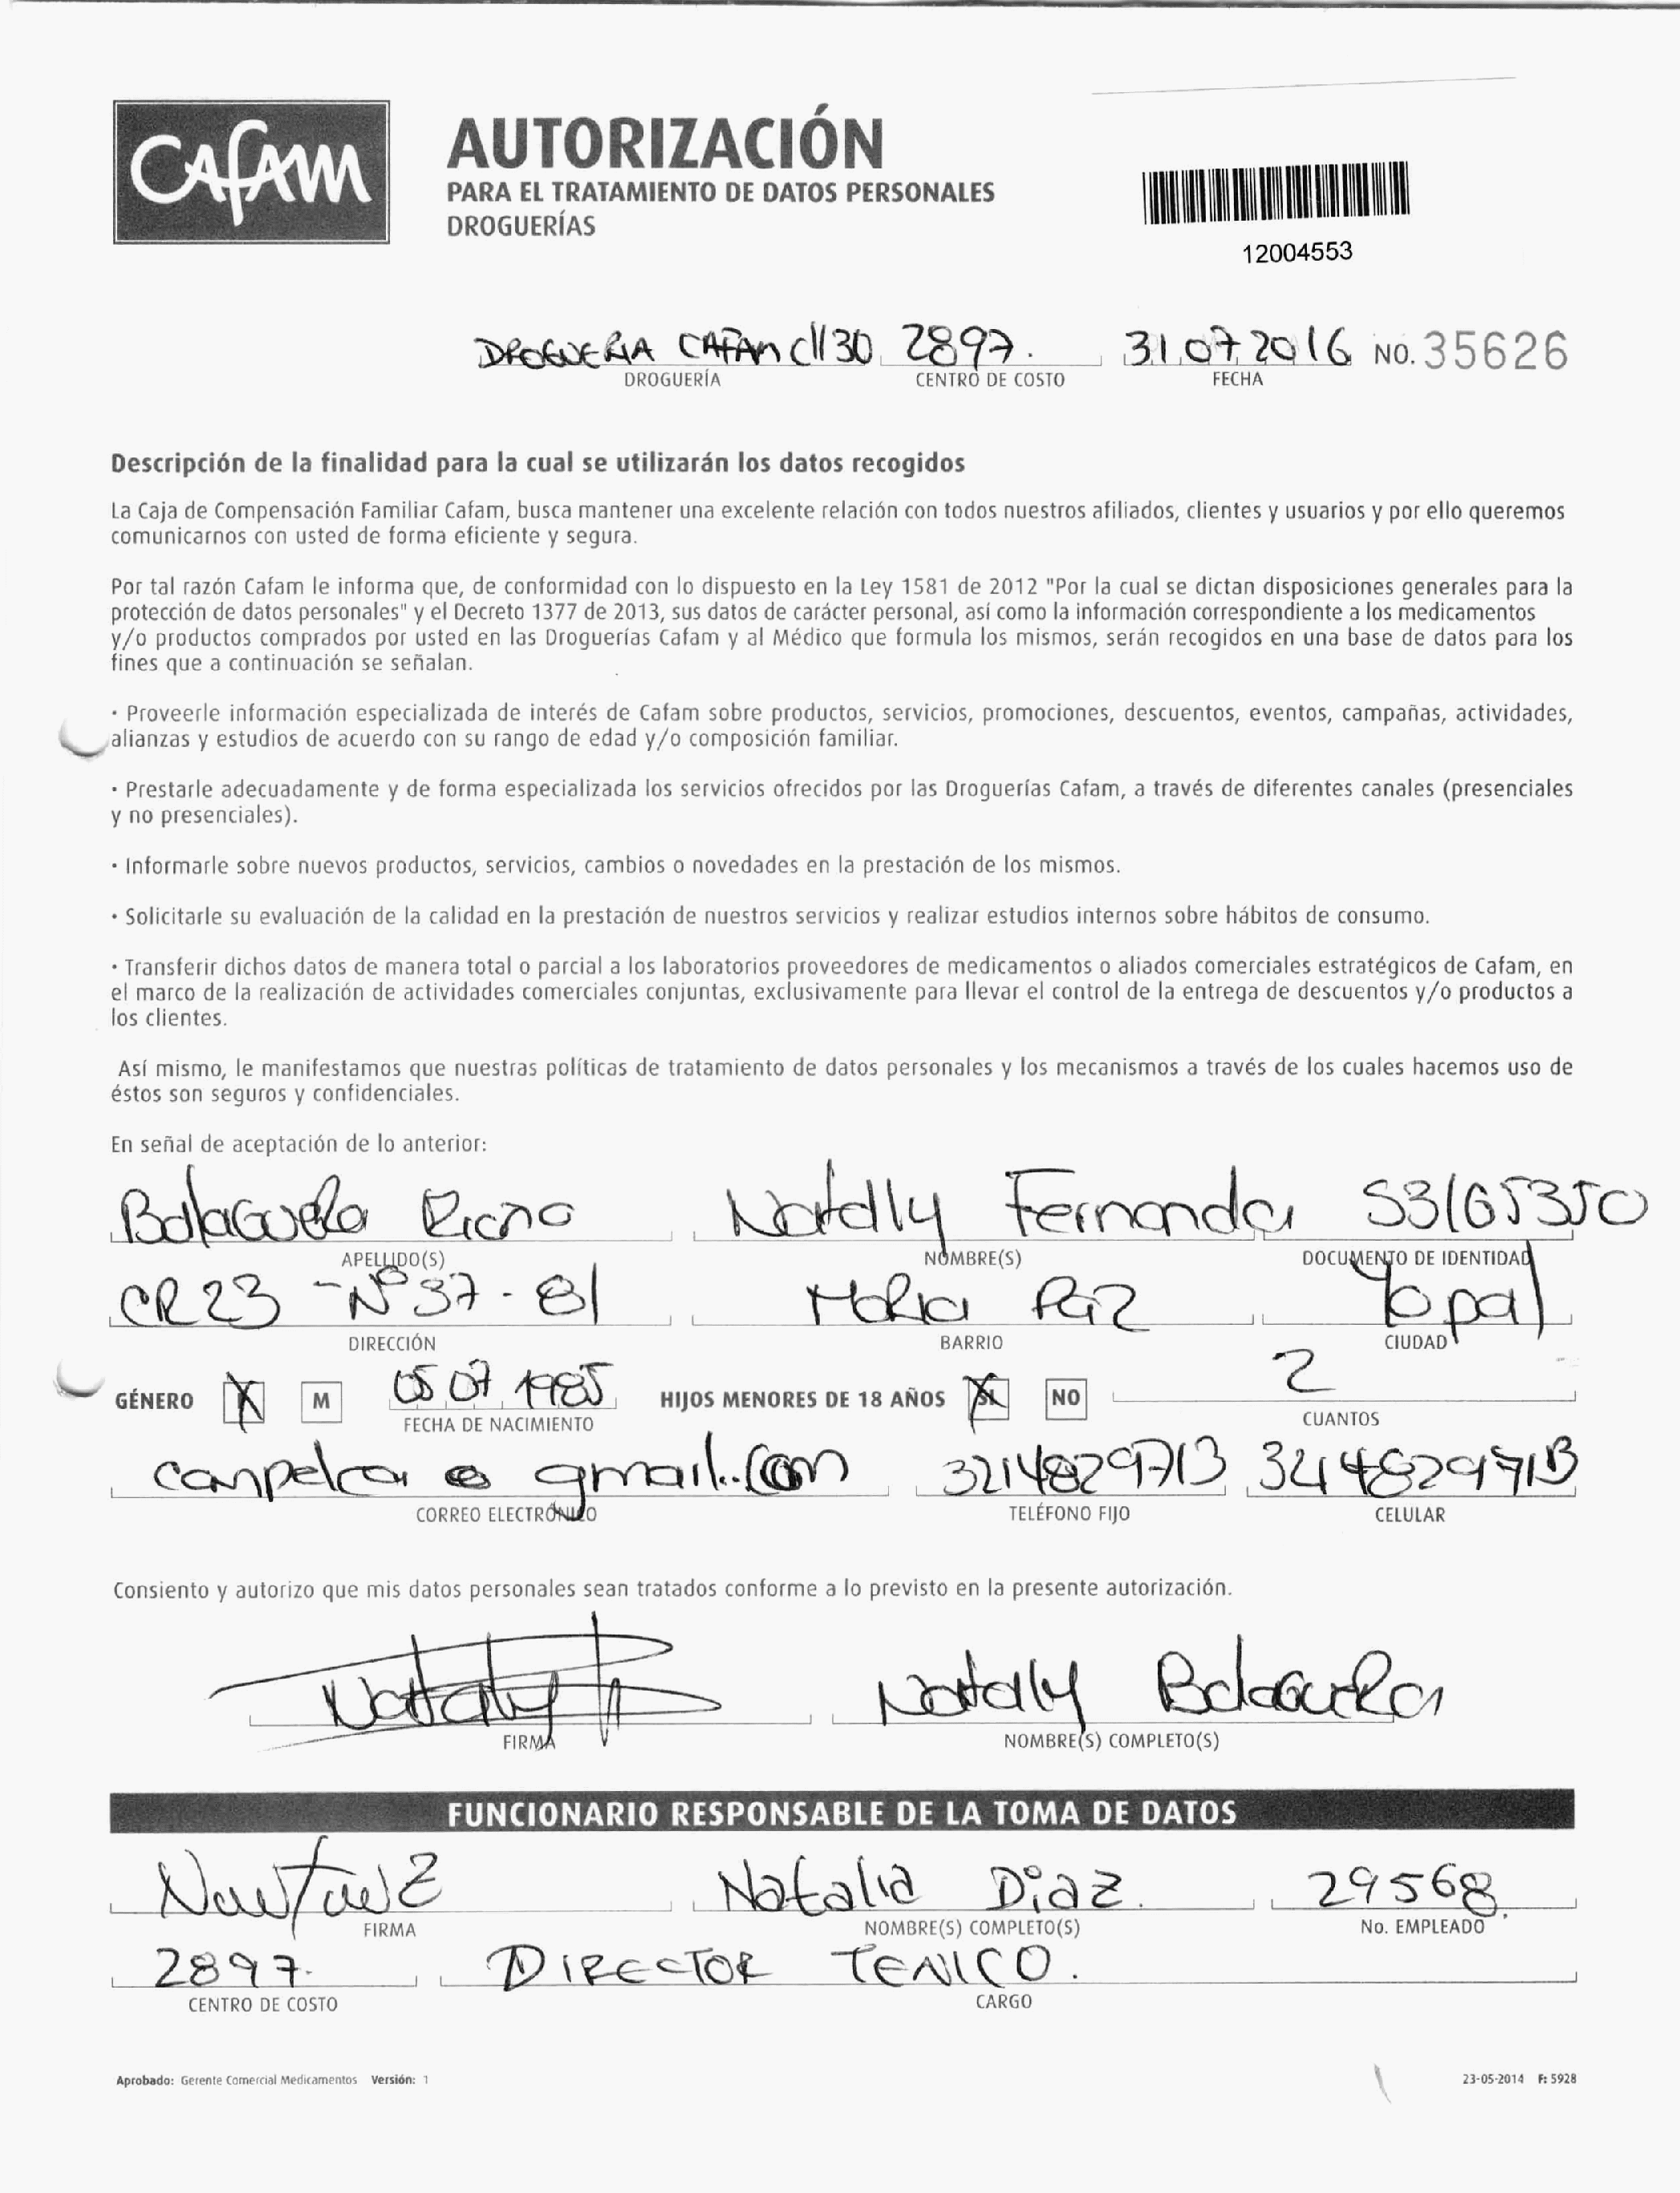 Cafam
AUTORIZACIÓN
PARA EL TRATAMIENTO DE DATOS PERSONALES
DROGUERÍAS
12004553
DROGUERIA CAFAM Cll 30 2897. 31 07 2016 NO. 35626
DROGUERÍA CENTRO DE COSTO FECHA
Descripción de la finalidad para la cual se utilizarán los datos recogidos
La Caja de Compensación Familiar Cafam, busca mantener una excelente relación con todos nuestros afiliados, clientes y usuarios y por ello queremos
comunicarnos con usted de forma eficiente y segura.
Por tal razón Cafam le informa que, de conformidad con lo dispuesto en la Ley 1581 de 2012 "Por la cual se dictan disposiciones generales para la
protección de datos personales" y el Decreto 1377 de 2013, sus datos de carácter personal, así como la información correspondiente a los medicamentos
y/o productos comprados por usted en las Droguerías Cafam y al Médico que formula los mismos, serán recogidos en una base de datos para los
fines que a continuación se señalan.
· Proveerle información especializada de interés de Cafam sobre productos, servicios, promociones, descuentos, eventos, campañas, actividades,
alianzas y estudios de acuerdo con su rango de edad y/o composición familiar.
· Prestarle adecuadamente y de forma especializada los servicios ofrecidos por las Droguerías Cafam, a través de diferentes canales (presenciales
y no presenciales).
· Informarle sobre nuevos productos, servicios, cambios o novedades en la prestación de los mismos.
· Solicitarle su evaluación de la calidad en la prestación de nuestros servicios y realizar estudios internos sobre hábitos de consumo.
· Transferir dichos datos de manera total o parcial a los laboratorios proveedores de medicamentos o aliados comerciales estratégicos de Cafam, en
el marco de la realización de actividades comerciales conjuntas, exclusivamente para llevar el control de la entrega de descuentos y/o productos a
los clientes.
Así mismo, le manifestamos que nuestras políticas de tratamiento de datos personales y los mecanismos a través de los cuales hacemos uso de
éstos son seguros y confidenciales.
En señal de aceptación de lo anterior:
Balaguera Natally Fernanda 53165350
APELLIDO(S) NOMBRE(S) DOCUMENTO DE IDENTIDAD
CR 23 - Nº 37 - 81 Yopal
DIRECCIÓN BARRIO CIUDAD
GÉNERO M 05 07 1985 HIJOS MENORES DE 18 AÑOS SI NO 2
FECHA DE NACIMIENTO CUANTOS
@ gmail.com 3214829713
CORREO ELECTRÓNICO TELÉFONO FIJO CELULAR
Consiento y autorizo que mis datos personales sean tratados conforme a lo previsto en la presente autorización.
Nataly Natally Balaguera
FIRMA NOMBRE(S) COMPLETO(S)
FUNCIONARIO RESPONSABLE DE LA TOMA DE DATOS
Natalia Diaz. 29568.
FIRMA NOMBRE(S) COMPLETO(S) No. EMPLEADO
2897. DIRECTOR TENICO.
CENTRO DE COSTO CARGO
Aprobado: Gerente Comercial Medicamentos Versión: 1 23-05-2014 F: 5928